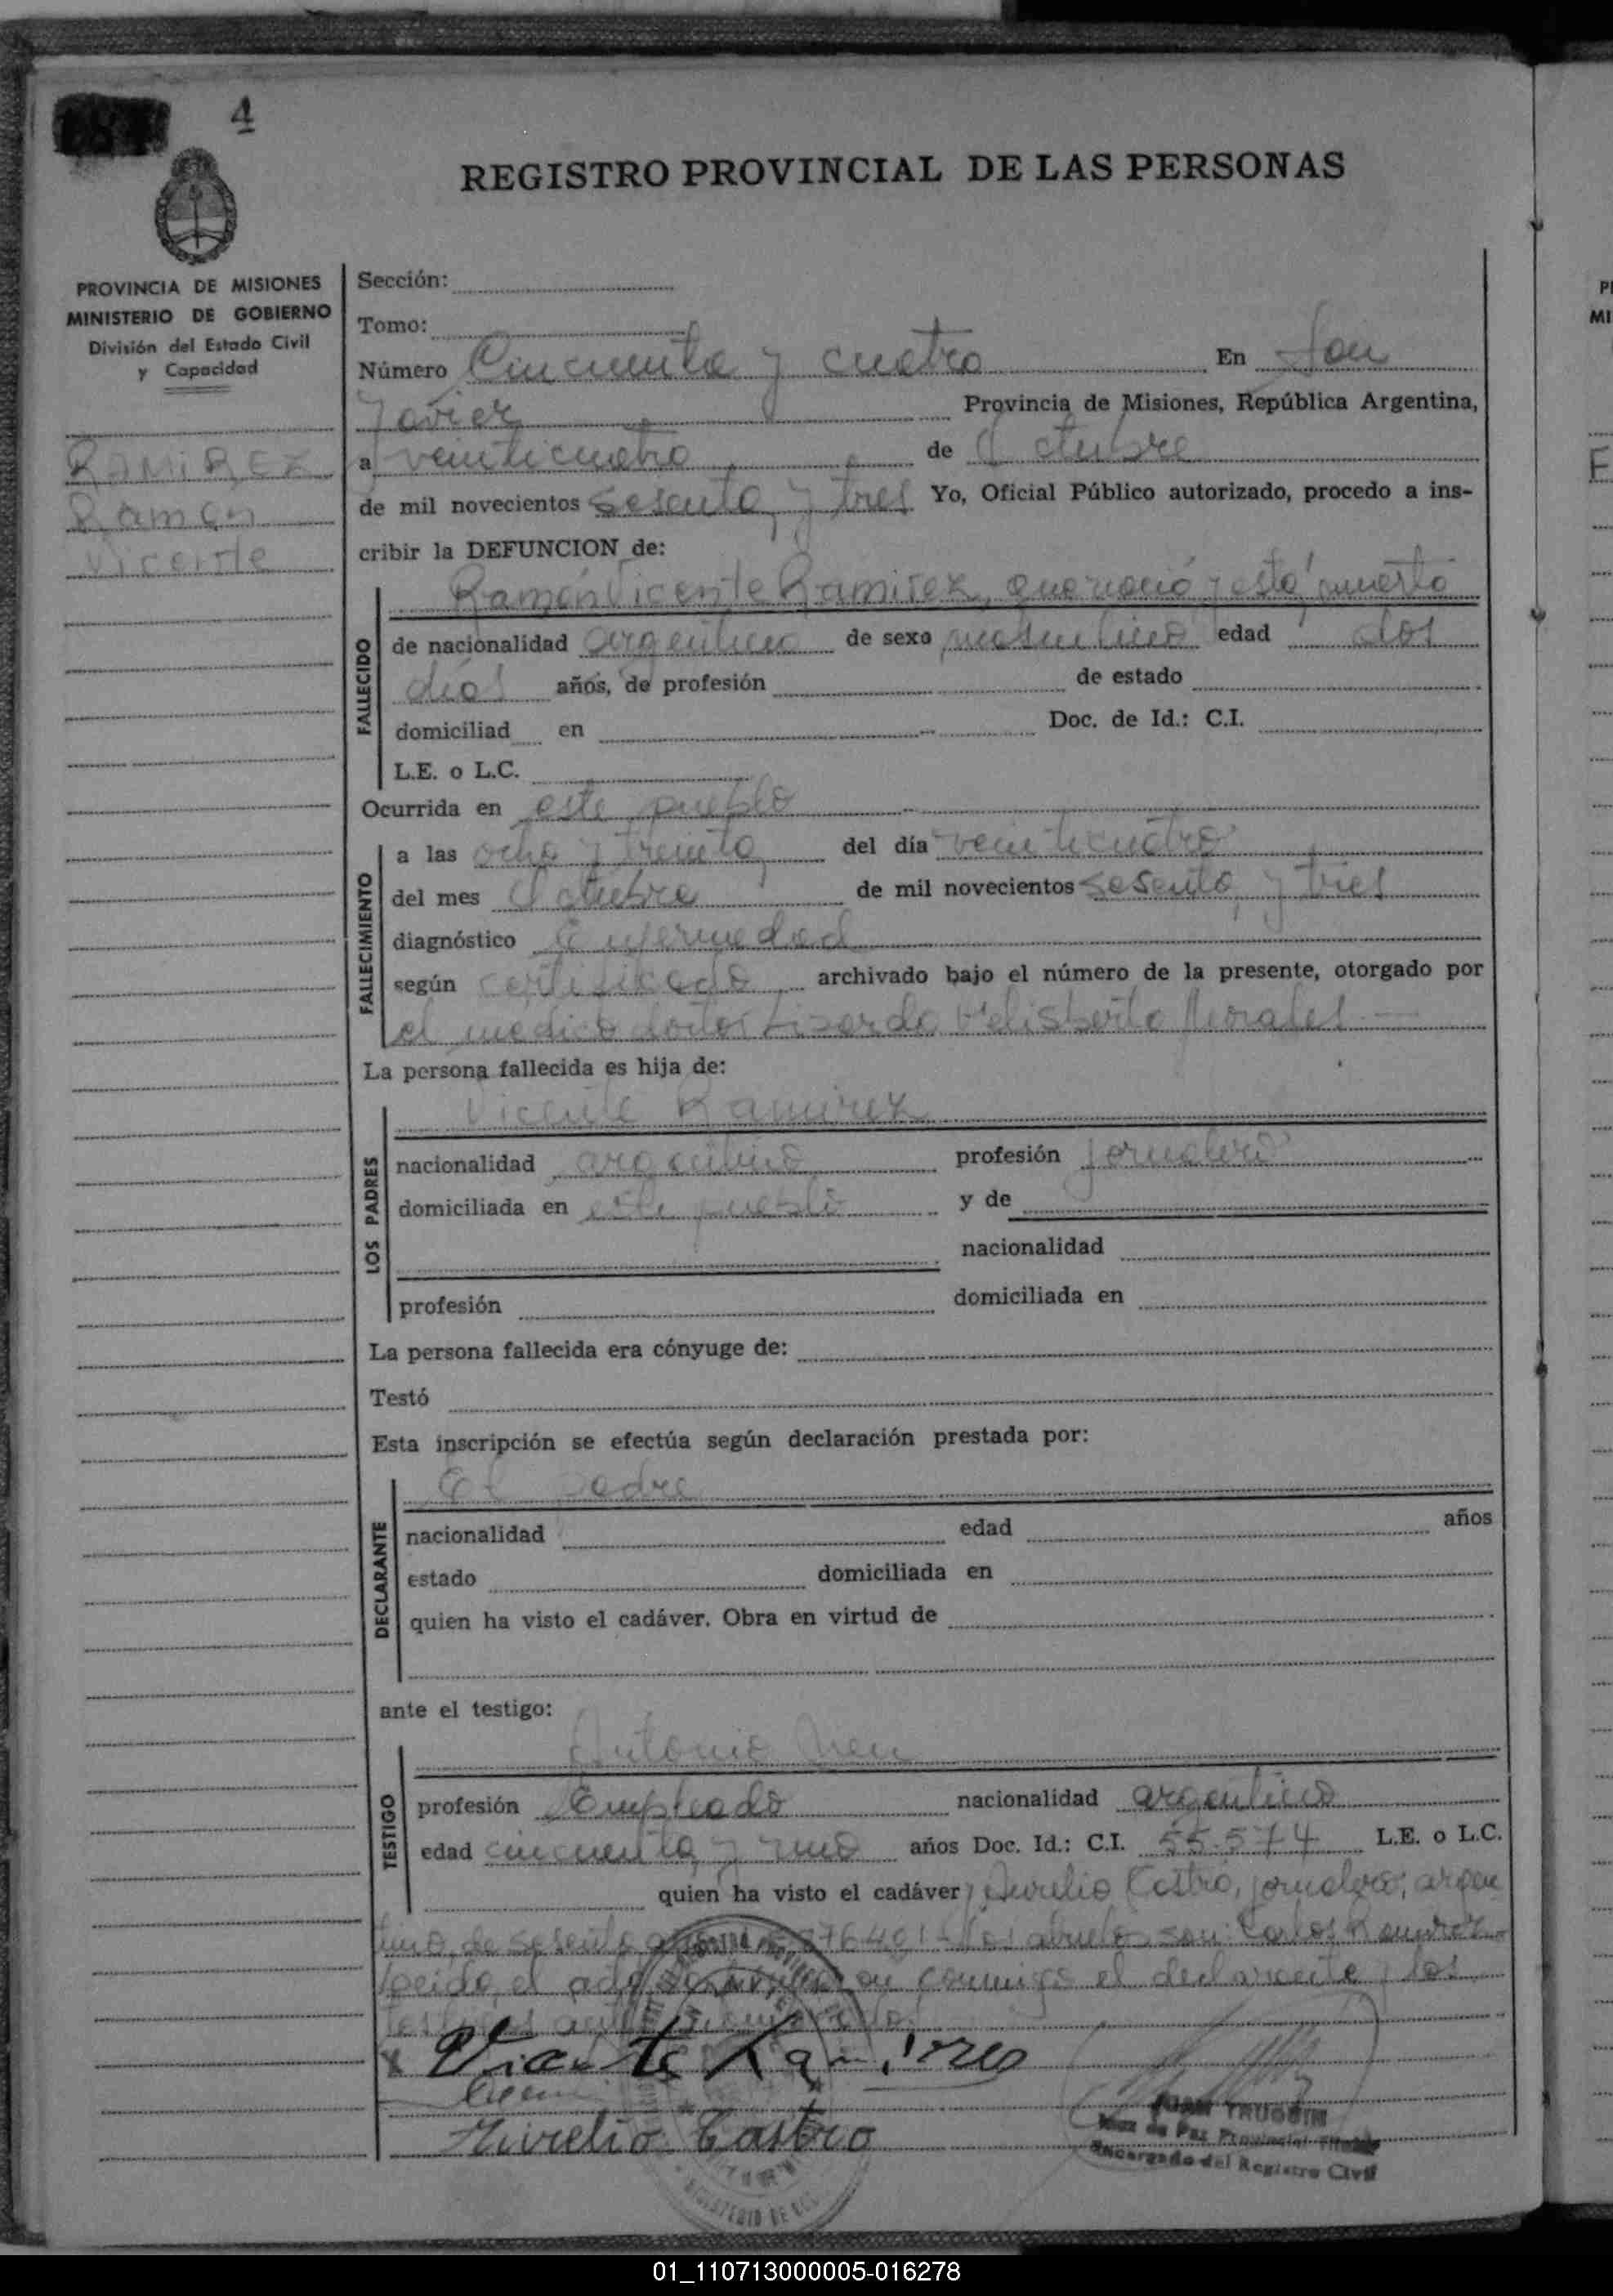 4
REGISTRO PROVINCIAL DE LAS PERSONAS
PROVINCIA DE MISIONES
MINISTERIO DE GOBIERNO
División del Estado Civil
y Capacidad
RAMIREZ
Ramon
Vicente
Sección:
Tomo:
Número Cincuenta y cuatro En San
Javier Provincia de Misiones, República Argentina,
a veinticuatro de Octubre
de mil novecientos sesenta y tres Yo, Oficial Público autorizado, procedo a ins-
cribir la DEFUNCION de:
Ramón Vicente Ramirez, que nació y está muerto
FALLECIDO
de nacionalidad argentino de sexo masculino edad dos
días años, de profesión de estado
domiciliad en Doc. de Id.: C.I.
L.E. o L.C.
Ocurrida en este pueblo
FALLECIMIENTO
a las ocho y treinta del día veinticuatro
del mes Octubre de mil novecientos sesenta y tres
diagnóstico Enfermedad
según certificado archivado bajo el número de la presente, otorgado por
el médico doctor Lisardo Felisberto Morales
La persona fallecida es hija de:
Vicente Ramirez
LOS PADRES
nacionalidad argentino profesión jornalero
domiciliada en este pueblo y de
nacionalidad
profesión domiciliada en
La persona fallecida era cónyuge de:
Testó
Esta inscripción se efectúa según declaración prestada por:
El padre
DECLARANTE
nacionalidad edad años
estado domiciliada en
quien ha visto el cadáver. Obra en virtud de
ante el testigo:
Antonio
TESTIGO
profesión Empleado nacionalidad argentino
edad cincuenta y uno años Doc. Id.: C.I. 55.574 L.E. o L.C.
quien ha visto el cadáver y Aurelio Castro, jornalero, argen
tino, de sesenta abuelos son: Carlos Ramirez
Leido el acta conmigo el declarante y los
Vicente Ramires
Aurelio Castro
JUAN TRUGGIN
Juez de Paz Provincial Titular
Encargado del Registro Civil
01_110713000005-016278